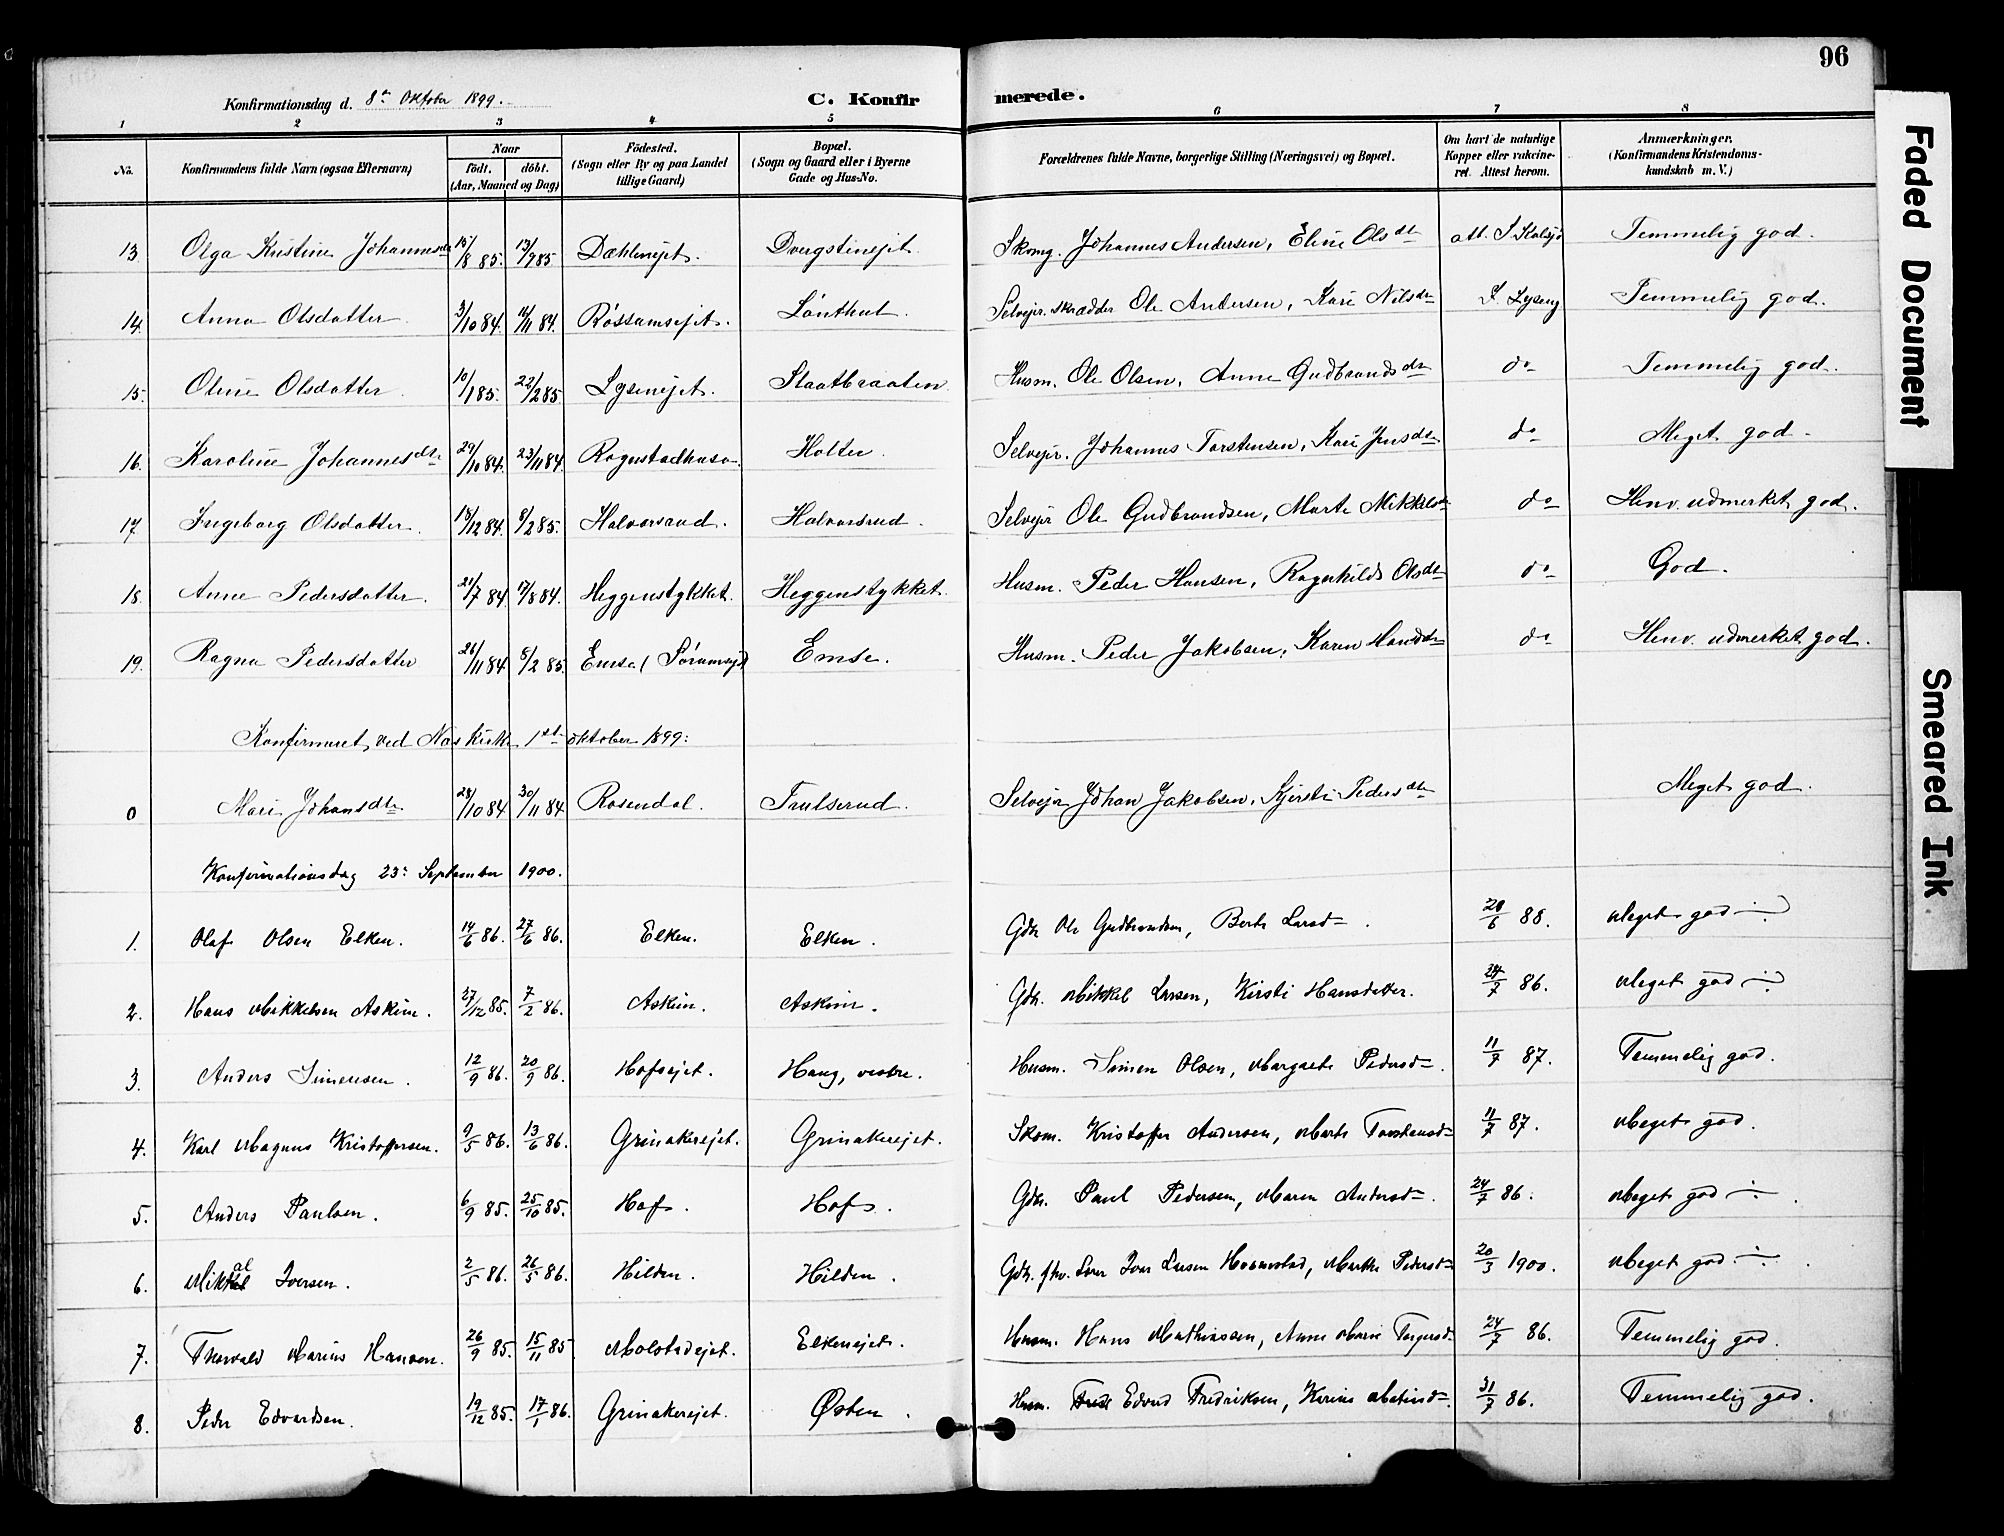 96
Konfirmationsdag d. 8de Oktober 1899.
C. Konfirmerede.
1 2 3 4 5 6 7 8
No. Konfirmandens fulde Navn (ogsaa Efternavn) Naar født. døbt. (Aar, Maaned og Dag) Fødested. (Sogn eller By og paa Landet tillige Gaard) Bopæl. (Sogn og Gaard eller i Byerne Gade og Hus-No. Forældrenes fulde Navne, borgerlige Stilling (Næringsvei) og Bopæl. Om havt de naturlige Kopper eller vakcineret. Attest herom. Anmærkninger. (Konfirmandens Kristendomskundskab m. V.)
13. Olga Kristine Johannesdtr 15/8 85. 13/9 85 Dæhlenejet. Dvergstinejet Skomg. Johannes Andersen, Eline Olsdtr att. Temmelig god.
14. Anna Olsdatter 3/10 84. 84. Røssumsejet. Lønthut. Selvejer. skrædder Ole Andersen, Kari Nilsdtr L. Lyseng Temmelig god.
15. Oline Olsdatter 10/1 85. 22/2 85 Lysenejet. Staatbraaten Husm. Ole Olsen, Anne Gudbrandsdtr do Temmelig god.
16. Karoline Johannesdtr 29/10 84. 23/11 84. Rognstadhusa. Holter. Selvejer. Johannes Torstensen, Kari Jensdtr do Meget god.
17. Ingeborg Olsdatter. 18/12 84. 8/2 85. Halvorsrud. Halvorsrud. Selvejer Ole Gudbrandsen, Marte Mikkelsdtr do Henv. udmerket god.
18. Anne Pedersdatter. 21/7 84. 17/8 84. Heggenstykket. Heggenstykket. Husm. Peder Hansen, Ragnhilds Olsdtr do God.
19. Ragna Pedersdatter 26/11 84. 8/2 85. Emse (Sørumsejet Emse. Husm. Peder Jakobsen, Karen Hansdtr do Henv. udmerket god.
Konfirmeret ved Næs Kirke 1ste oktober 1899:
0 Mari Johansdtr 28/10 84 30/11 84. Rosendal. Trulserud. Selvejer Johan Jakobsen, Kjersti Pedersdtr Meget god.
Konfirmationsdag 23de September 1900.
1. Olaf Olsen Elken. 14/6 86. 27/6 86. Elken. Elken. Gdbr Ole Gudbrandsen, Berte Larsd. 20/6 88. Meget god
2. Hans Mikkelsen Askim. 27/12 85. 7/2 86. Askim. Askim. Gdbr. Mikkel Larsen, Kirsti Hansdatter. 24/7 86. Meget god
3. Anders Simensen. 12/9 86. 20/9 86. Hofsejet. Haug, vestre. Husm. Simen Olsen, Margrete Pedersd. 11/7 87. Temmelig god.
4. Karl Magnus Kristoffersen. 9/5 86. 13/6 86. Grinakerejet. Grinakerejet. Skom. Kristoffer Andersen, Marte Torstensd. 11/7 87. Meget god.
5. Anders Paulsen. 6/9 85. 25/10 85. Hof. Hof. Gdbr. Paul Pedersen, Maren Andersd. 24/7 86. Meget god
6. Mikkal Iversen. 2/5 86. 26/5 86. Hilden. Hilden. Gdbr. Iver Larsen, Marthe Pedersd. 20/3 1900. Meget god
7. Thorvald Marius Hansen. 26/9 85. 15/11 85 Molstadejet. Elkenejet. Husm. Hans Mathiassen, Anne Marie Torgersd. 24/7 86. Temmelig god.
8. Peder Edvardsen. 19/12 85. 17/1 86. Grinakerejet. Østen. Husm. Edvard Fredriksen, Karine 31/7 86. Temmelig god.
Faded Document
Smeared Ink